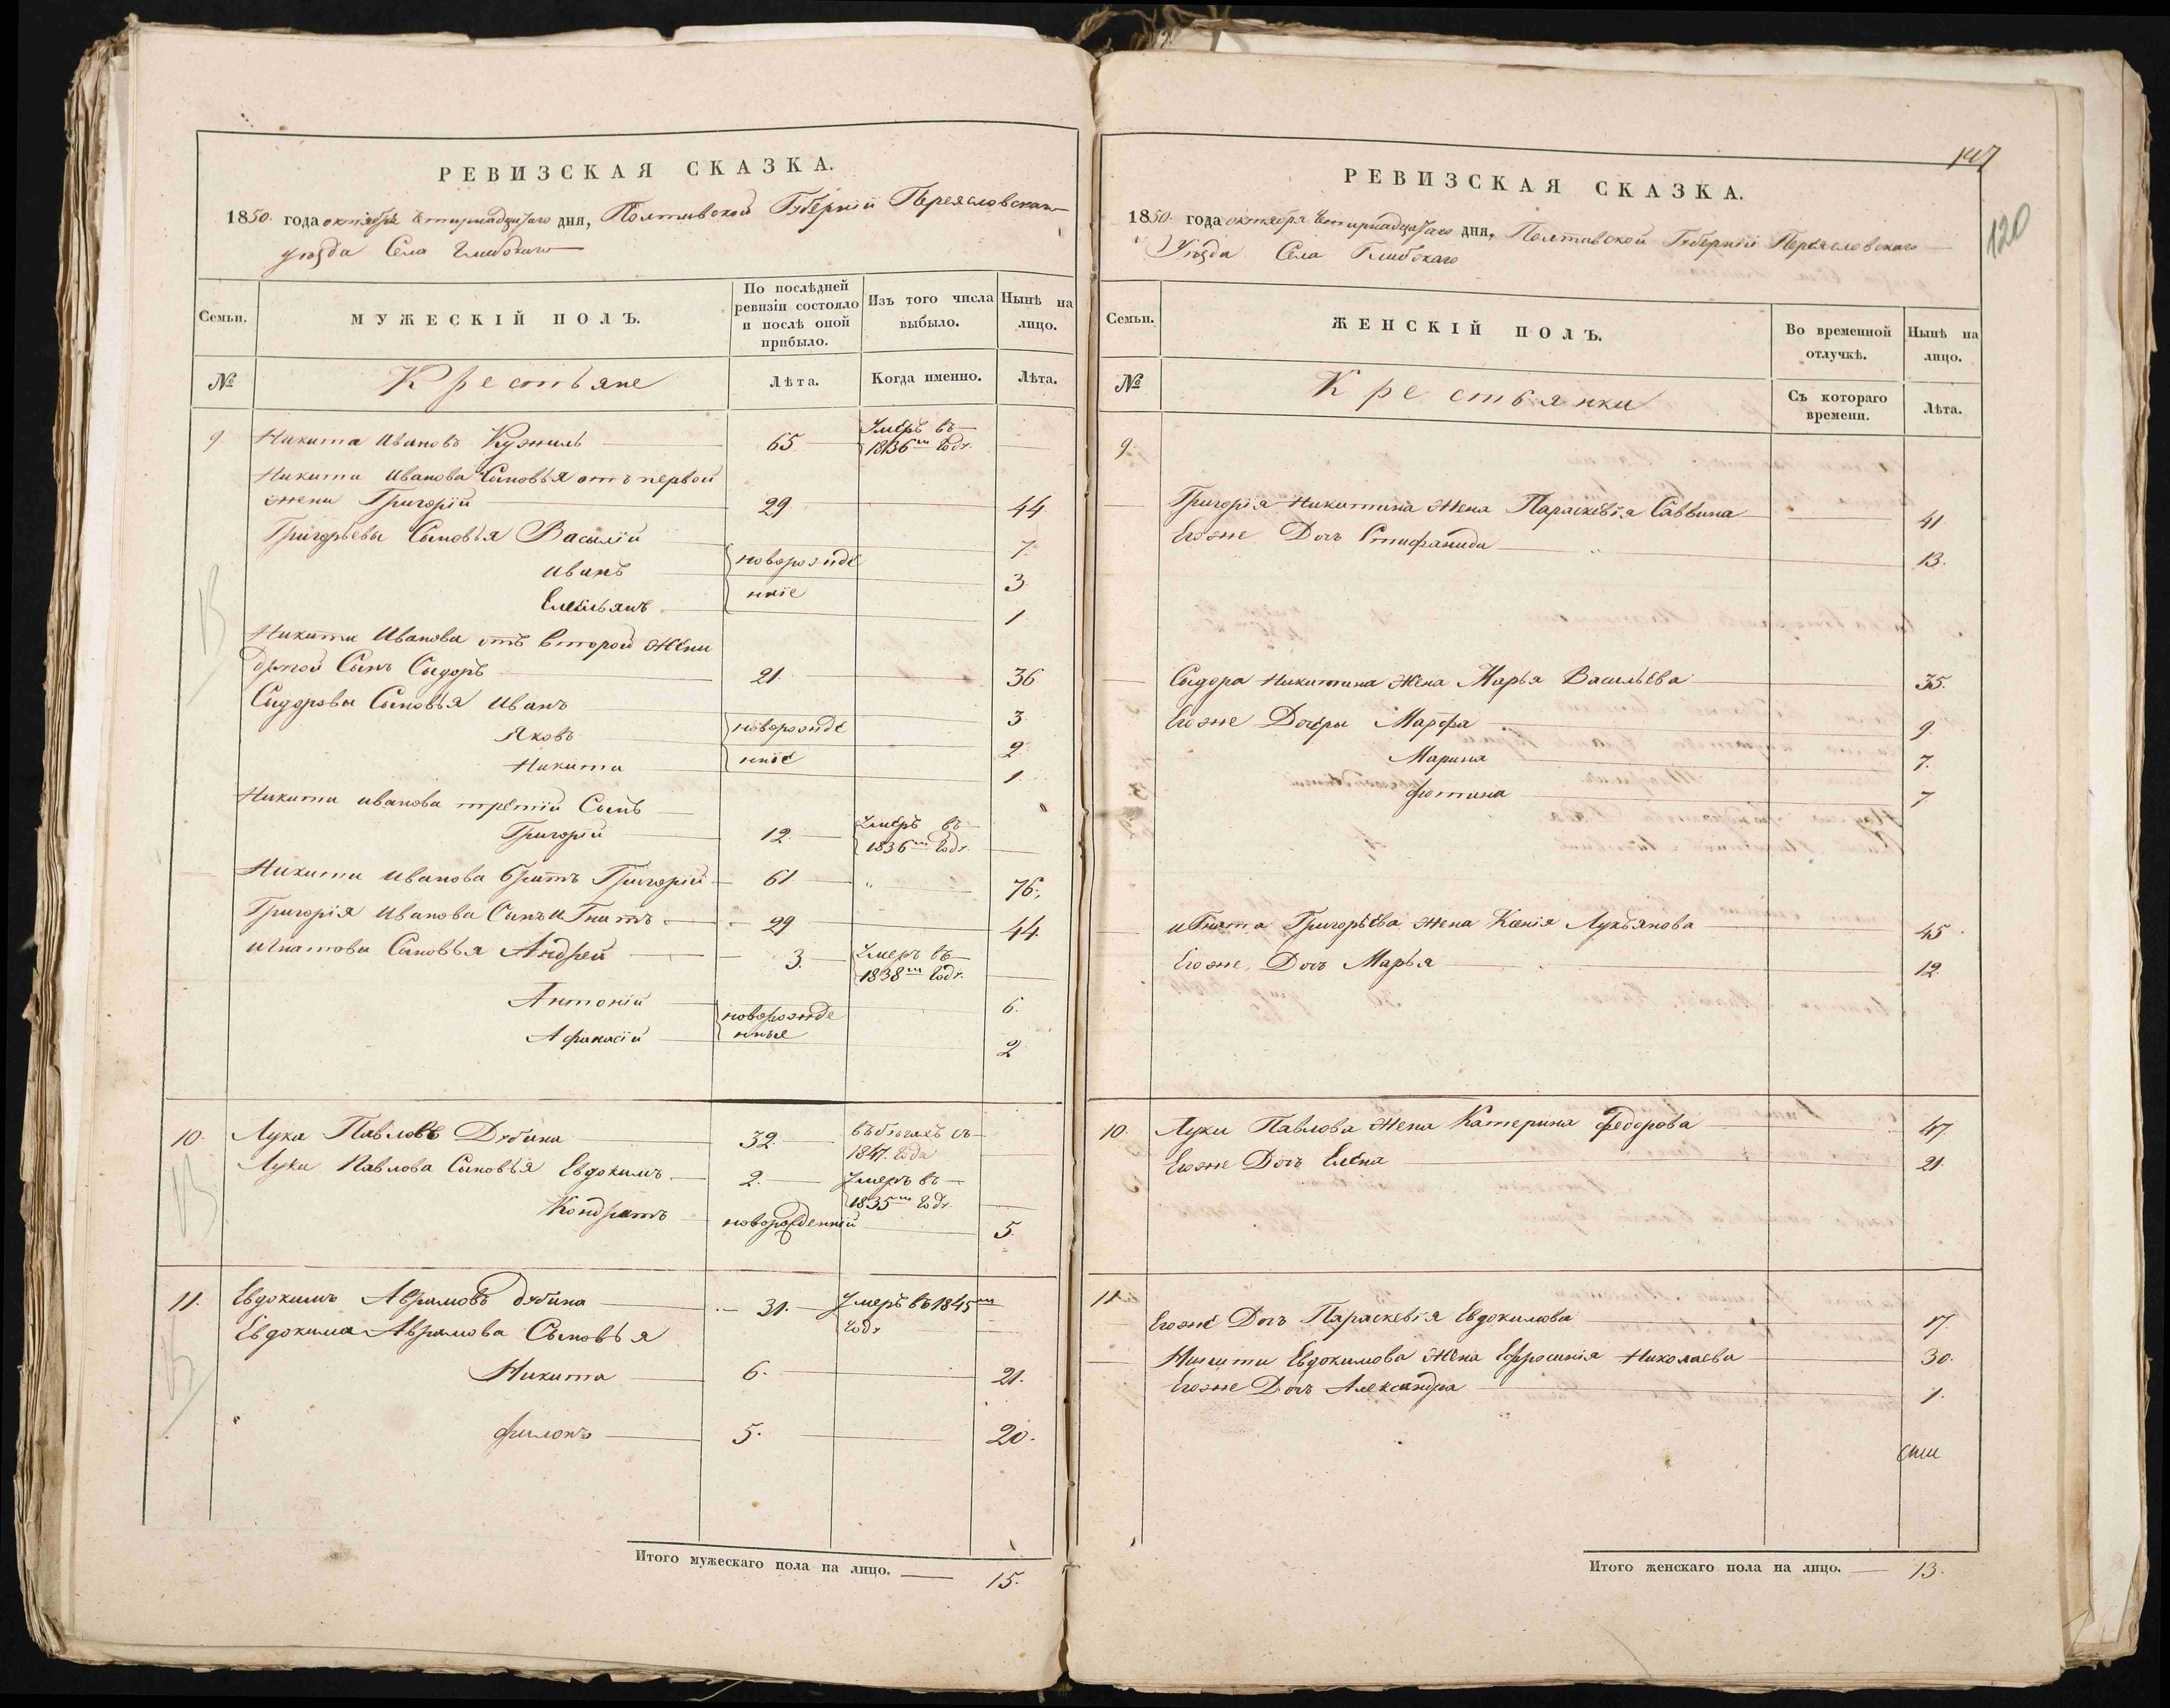 РЕВИЗСКАЯ СКАЗКА.
1850. года октября Четирнадцатаго дня, Полтавской Губерніи Переясловскаго
уѣзда Села Глибокаго
Семьи.
МУЖЕСКІЙ ПОЛЪ.
По послѣдней ревизіи состояло и послѣ оной прибыло.
Изъ того числа выбыло.
Нынѣ на лицо.
№
Крестьяне
Лѣта.
Когда именно.
Лѣта.
9 Никита Ивановъ 65 Умеръ въ 1836м Году.
Никити Иванова Сыновья отъ первой
жени Григорій 29 44
Григорьевы Сыновья Василій 7.
Иванъ новорожде 3.
Емельянъ нніе 1
Никити Иванова отъ второй Жени
другой Сынъ Сыдоръ 21 36
Сыдоровы Сыновья Иванъ 3
Яковъ новорожде 2
Никита нніе 1.
Никити Иванова третій Сынъ
Григорій 12. Умеръ въ 1836м Году.
Никити Иванова братъ Григорій 61 76.
Григорія Иванова Сынъ Игнатъ 29 44.
Игнатовы Сыновья Андрей 3. Умеръ въ 1838м Году.
Антоній новорожде 6.
Афанасій нные 2
10. Лука Павловъ Дубина 32. въ бѣгахъ съ 1847. Года
Луки Павлова Сыновья Евдокимъ 2. Умеръ въ 1835м Году
Кондратъ новорожденній 5.
11. Евдокимъ Аврамовъ Дубина 31. Умеръ въ 1845м Году
Евдокима Аврамова Сыновья
Никита 6. 21.
Филонъ 5. 20.
Итого мужескаго пола на лицо. 15.
147
120
РЕВИЗСКАЯ СКАЗКА.
1850 года октября Четирнадцатаго дня, Полтавской Губерніи Переясловскаго
Уѣзда Села Глибокаго
Семьи.
ЖЕНСКІЙ ПОЛЪ.
Во временной отлучкѣ.
Нынѣ на лицо.
№
Крестьянки
Съ котораго времени.
Лѣта.
9.
Григорія Никитина Жена Параскевія Саввина 41
Егоже Дочь Стифанида 13.
Сыдора Никитина Жена Марья Васильева 35.
Егоже Дочеры Марфа 9.
Марина 7.
Фотина 7
Игната Григорьева Жена Ксенія Лукьянова 45
Егоже Дочь Марья 12
10. Луки Павлова Жена Катерина Федорова 47.
Егоже Дочь Елена 21.
11
Егоже Дочь Параскевія Евдокимова 17.
Никити Евдокимова Жена Ефросинія Николаева 30.
Егоже Дочь Александра 1.
Итого женскаго пола на лицо. 13.